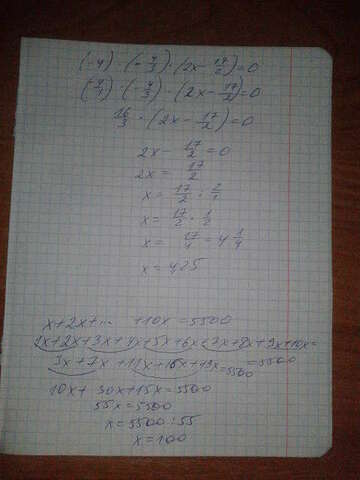 (-4) · (-4/3) · (2x - 17/2) = 0
(-4/1) · (-4/3) · (2x - 17/2) = 0
16/3 · (2x - 17/2) = 0
2x - 17/2 = 0
2x = 17/2
x = 17/2 : 2/1
x = 17/2 · 1/2
x = 17/4 = 4 1/4
x = 4,25
x + 2x + ... + 10x = 5500
1x + 2x + 3x + 4x + 5x + 6x + 7x + 8x + 9x + 10x =
3x + 7x + 11x + 15x + 19x = 5500 = 5500
10x + 30x + 15x = 5500
55x = 5500
x = 5500 : 55
x = 100